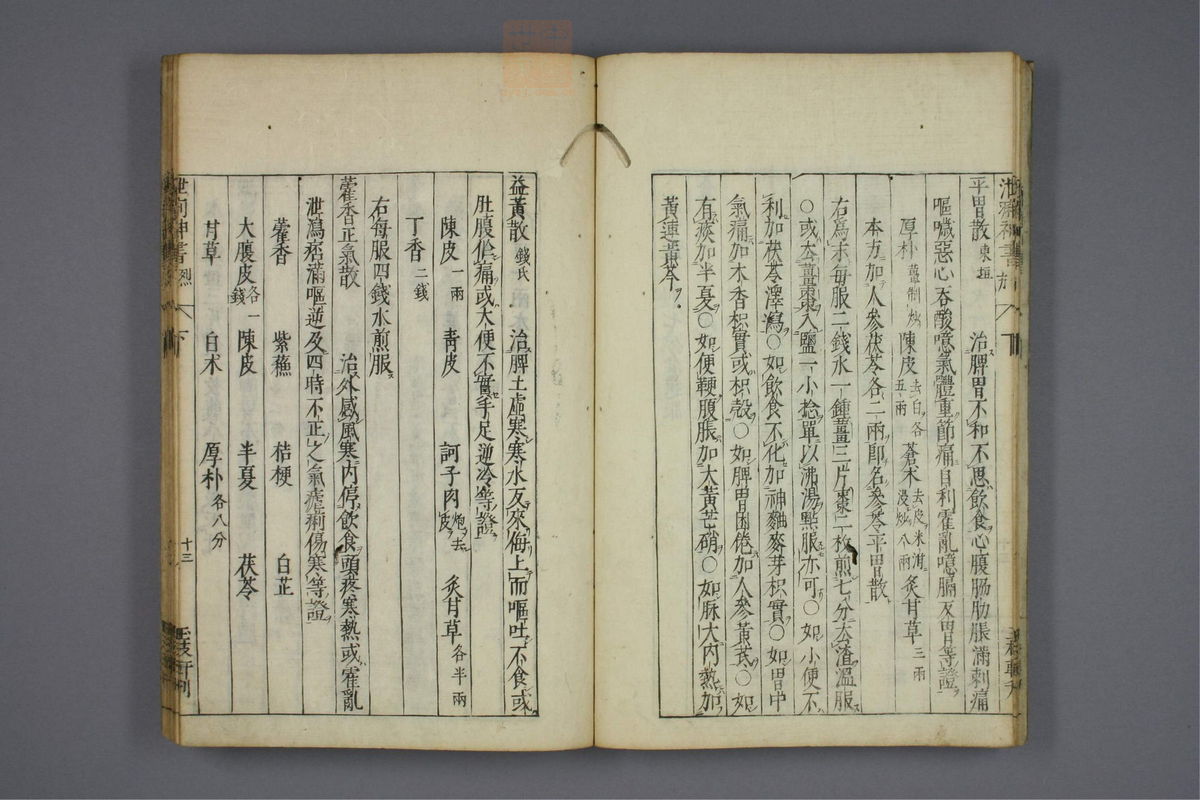 平胃散 東垣 治脾胃不和不思飲食心腹脇肋脹滿刺痛
嘔噦惡心吞酸噫氣體重節痛自利霍亂噫膈反胃等證
厚朴 薑制炒 陳皮 去白各五兩 蒼朮 去皮米泔浸炒八兩 炙甘草 三兩
本方加人參茯苓各二兩卽名參苓平胃散
右爲末每服二錢水一鍾薑三片棗二枚煎七分去渣溫服
○或去薑棗入鹽一小捻單以沸湯㸃服亦可○如小便不
利加茯苓澤瀉○如飲食不化加神麯麥芽枳實○如胃中
氣痛加木香枳實或枳殼○如脾胃困倦加人參黃芪○如
有痰加半夏○如便鞕腹脹加大黃芒硝○如脉大內熱加
黃連黃芩
益黃散 錢氏 治脾土虛寒寒水反來侮上而嘔吐不食或
肚腹㽲痛或大便不實手足逆冷等證
陳皮 一兩 青皮 訶子肉 炮去皮 炙甘草 各半兩
丁香 二錢
右每服四錢水煎服
藿香正氣散 治外感風寒內停飲食頭疼寒熱或霍亂
泄瀉痞滿嘔逆及四時不正之氣瘧痢傷寒等證
藿香 紫蘇 桔梗 白芷
大腹皮 各一錢 陳皮 半夏 茯苓
甘草 白朮 厚朴 各八分
下 十三